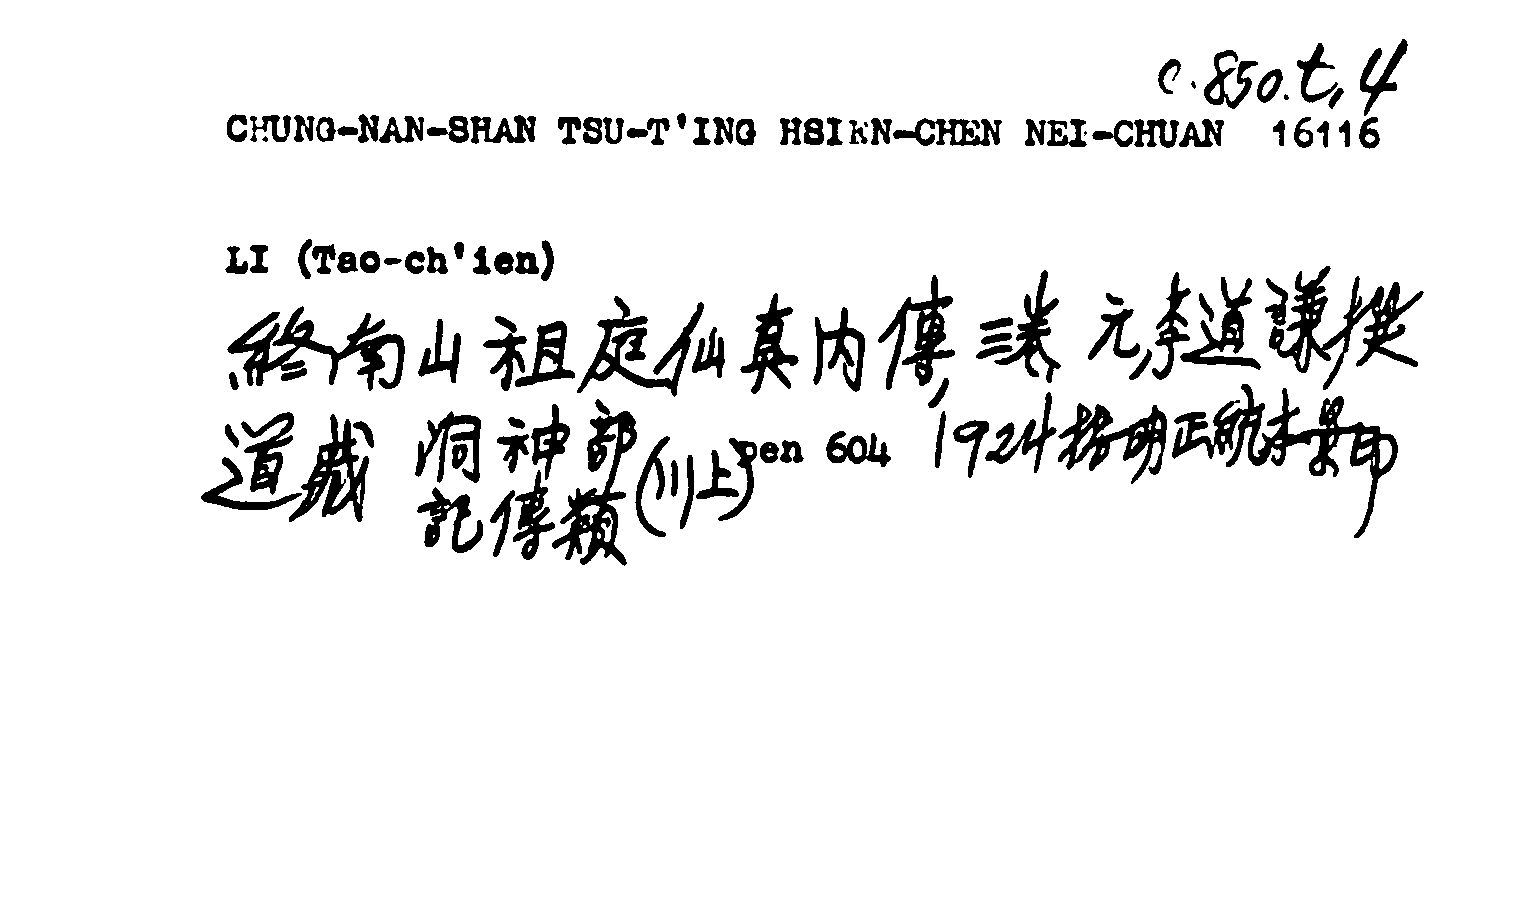 c.850.t.4
CHUNG-NAN-SHAN TSU-T'ING HSIEN-CHEN NEI-CHUAN 16116
LI (Tao-ch'ien)
終南山祖庭仙真内傳,三卷 元,李道謙撰
道藏 洞神部 記傳類 (川上) pen 604 1924據明正統本景印